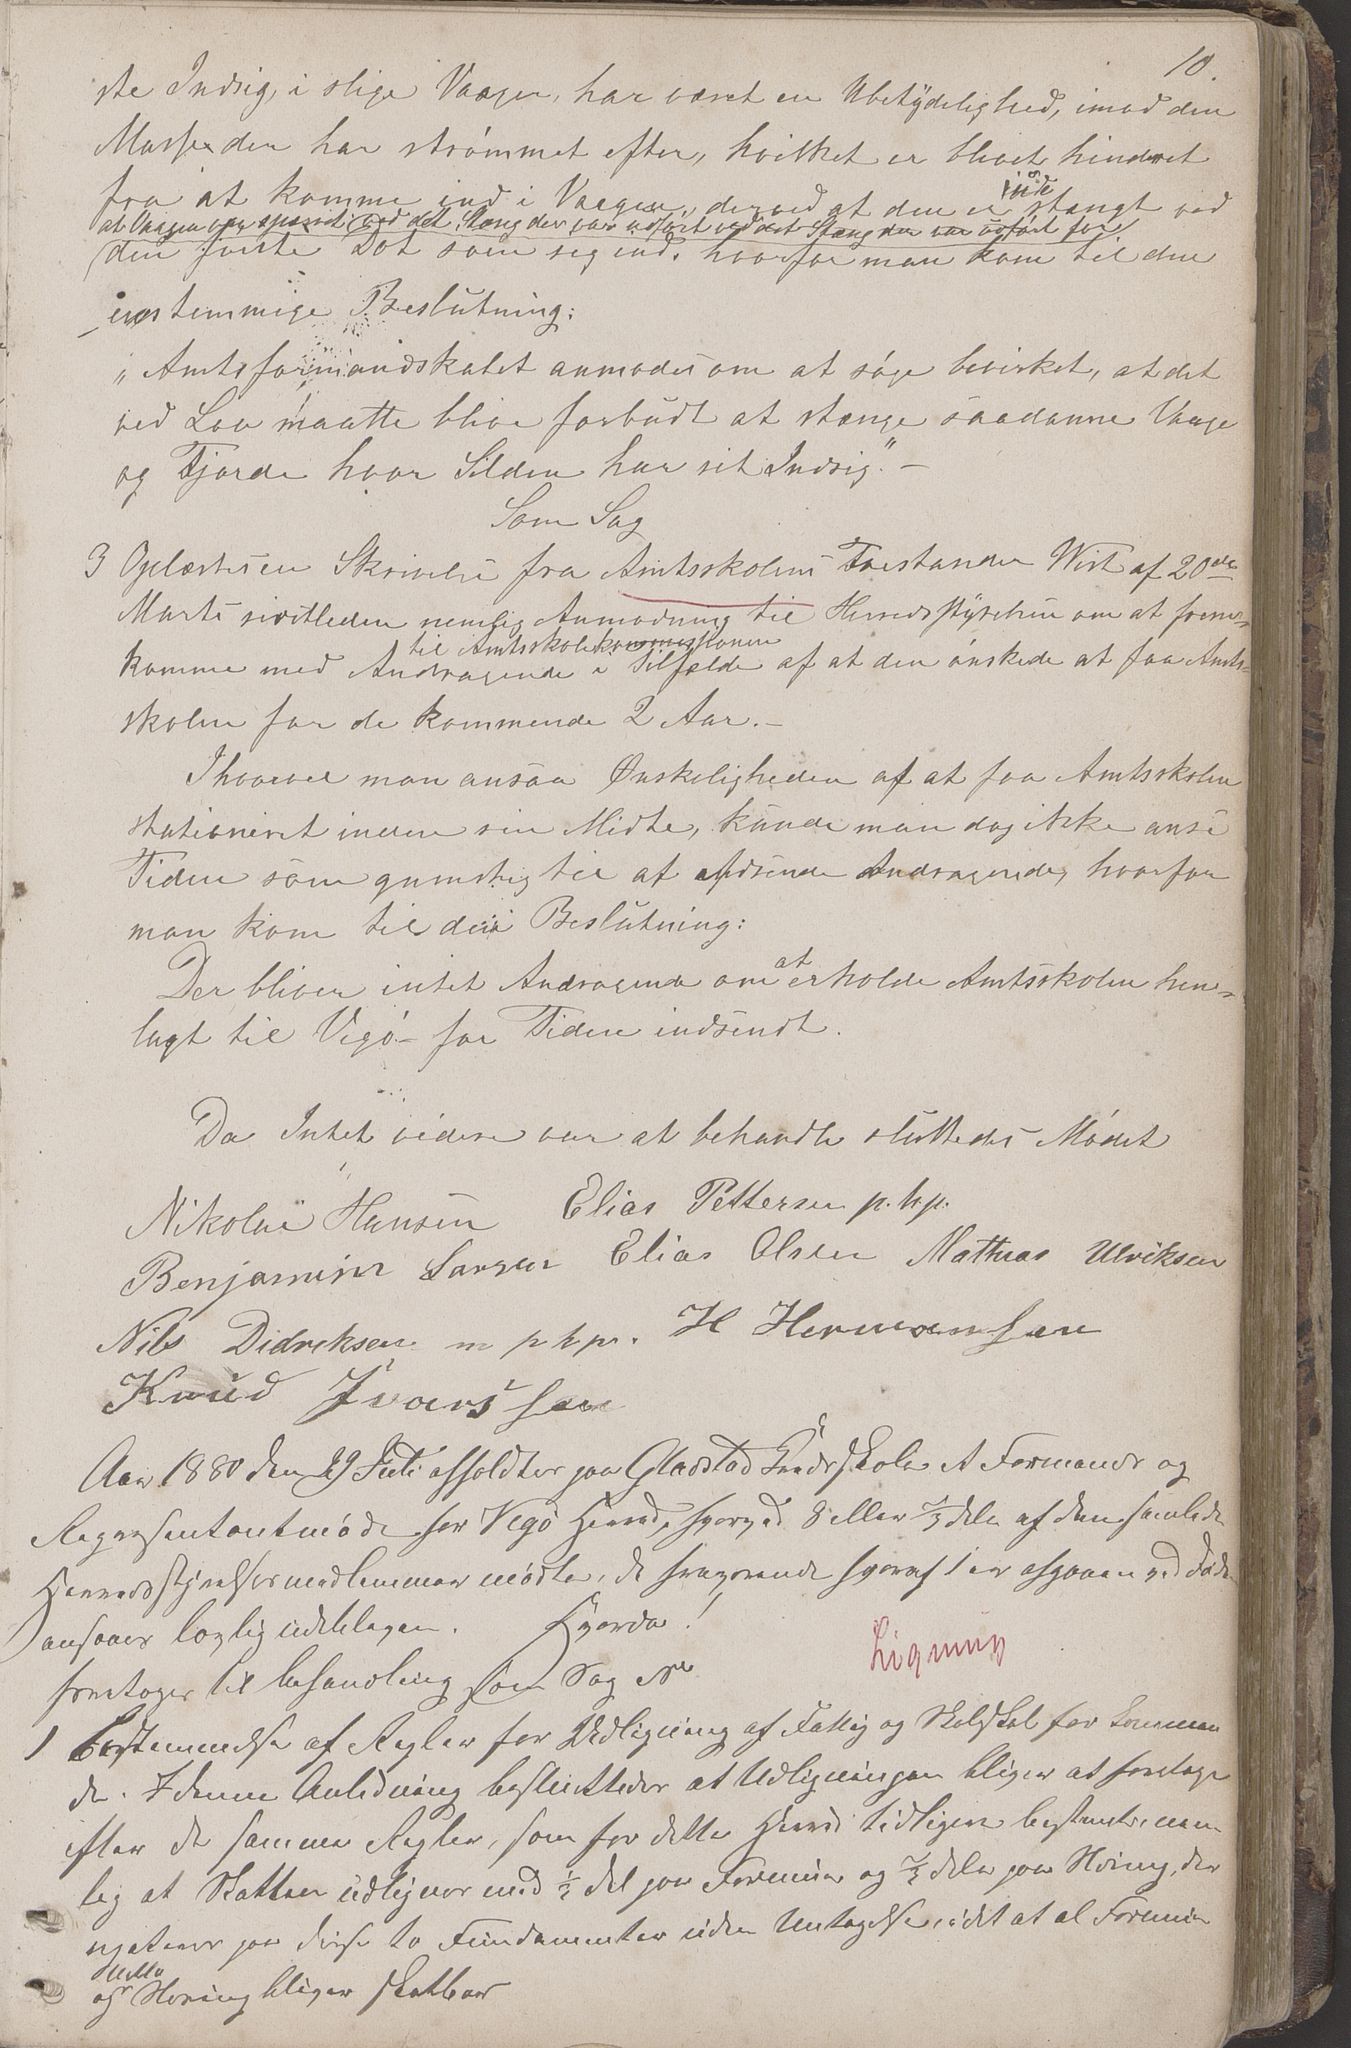 10.
ste Indsig, i slige Vaager, har været en Ubetydelighed, imod den
Masse der har strømmet efter, hvilket er blevet hindret
fra at komme ind i Vaagen, derved at den er stængt ved
at Vaagen var spærret ved det Stæng der var udført ved det Stæng der var udført for
den første Dot som seg ind. hvorfor man kom til den
enstemmige Beslutning:
"Amtsformandskabet anmodes om at søge bevirket, at det
ved Lov maatte blive forbudt at stænge saadanne Vaage
og Fjorde hvor Silden har sit Indsig." –
Som Sag
3 Oplæstes en Skrivelse fra Amtsskolens Forstander Wist af 20de
Marts sidstleden nemlig Anmodning til Herredsstyrelsen om at frem-
til Amtsskolekommissionen
komme med Andragende i Tilfælde af at den ønskede at faa Amts-
skolen for de kommende 2 Aar. –
Ihvorvel man ansaa Ønskeligheden af at faa Amtsskolen
stationeret inden sin Midte, kunde man dog ikke anse
Tiden som gunstig til at afsende Andragende, hvorfor
man kom til den Beslutning:
Der bliver intet Andragende om at erholde Amtsskolen hen-
lagt til Vegø – for Tiden indsendt.
Da Intet videre var at behandle sluttedes Mødet
Nikolai Hansen Elias Pettersen p. h. p.
Benjamin Larsen Elias Olsen Mathias Ulriksen
Nils Didriksen m p h p. H Hermansen
Knud Ivarssen
Aar 1880 den 29 Juli afholdtes paa Gladstad Fredsskole et Formands og
Repræsentantmøde for Vegø Herred, hvorved 8 eller 2/3 dele af den samlede
Herredsstyrelses medlemmer mødte, de fraværende hvoraf 1 er afgaaen ved Døden
ansaaes lovlig udeblegen. Hvorda!
foretages til behandling som Sag No
Ligning
1 Bestemmelse af Regler for Udligning af Fattig og Skolskat for Kommen
de. I denne Anledning besluttedes at Udligningen bliver at foretage
efter de samme Regler, som for dette Herred tidligere bestemte, nem
lig at Skatten udlignes med 1/3 del paa Formue og 2/3 dele paa Næring, der
paa disse to Fundamenter uden Undtagelse, idet at al Formue
og Næring bliver skatbar